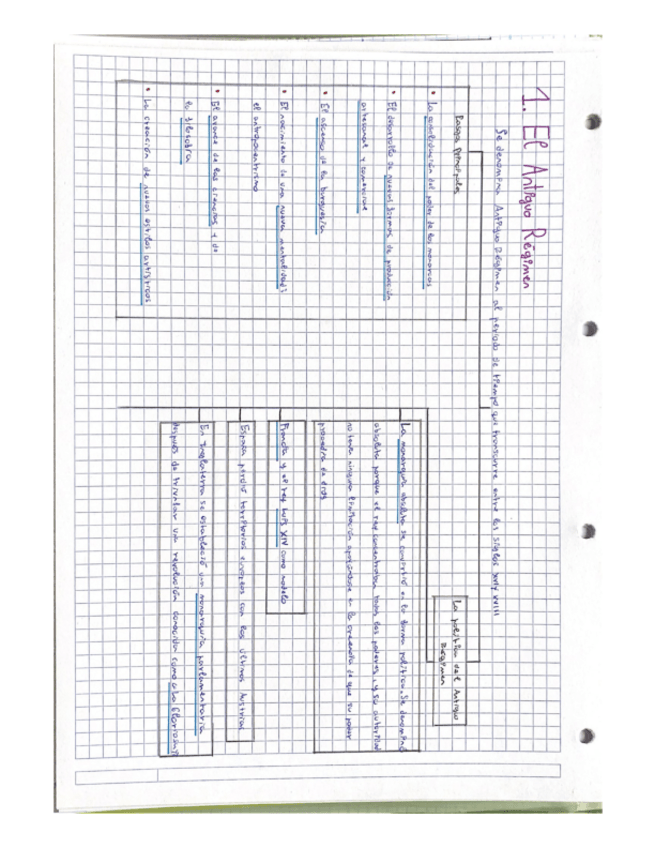 1. El Antiguo Régimen
Se denomina Antiguo Régimen al periodo de tiempo que transcurre entre los siglos XVI y XVIII
Rasgos Principales
• La consolidación del poder de los monarcas
• El desarrollo de nuevas formas de producción
artesanal y comercial
• El ascenso de la burguesía
• El nacimiento de una nueva mentalidad:
el antropocentrismo
• El avance de las ciencias y de
la filosofía
• La creación de nuevos estilos artísticos
La política del Antiguo
Régimen
La monarquía absoluta se convirtió en la forma política. Se denomina
absoluta porque el rey concentraba todos los poderes, y su autoridad
no tenía ninguna limitación apoyándose en la creencia de que su poder
procedía de dios
Francia y el rey Luis XIV como modelo
España perdió territorios europeos con los últimos Austrias
En Inglaterra se estableció una monarquía parlamentaria
después de triunfar una revolución conocida como a la Gloriosa